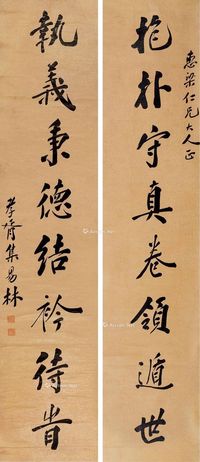 惠梁仁兄大人正
抱朴守真卷領遁世
執義秉德結衿待旹
孝胥集易林